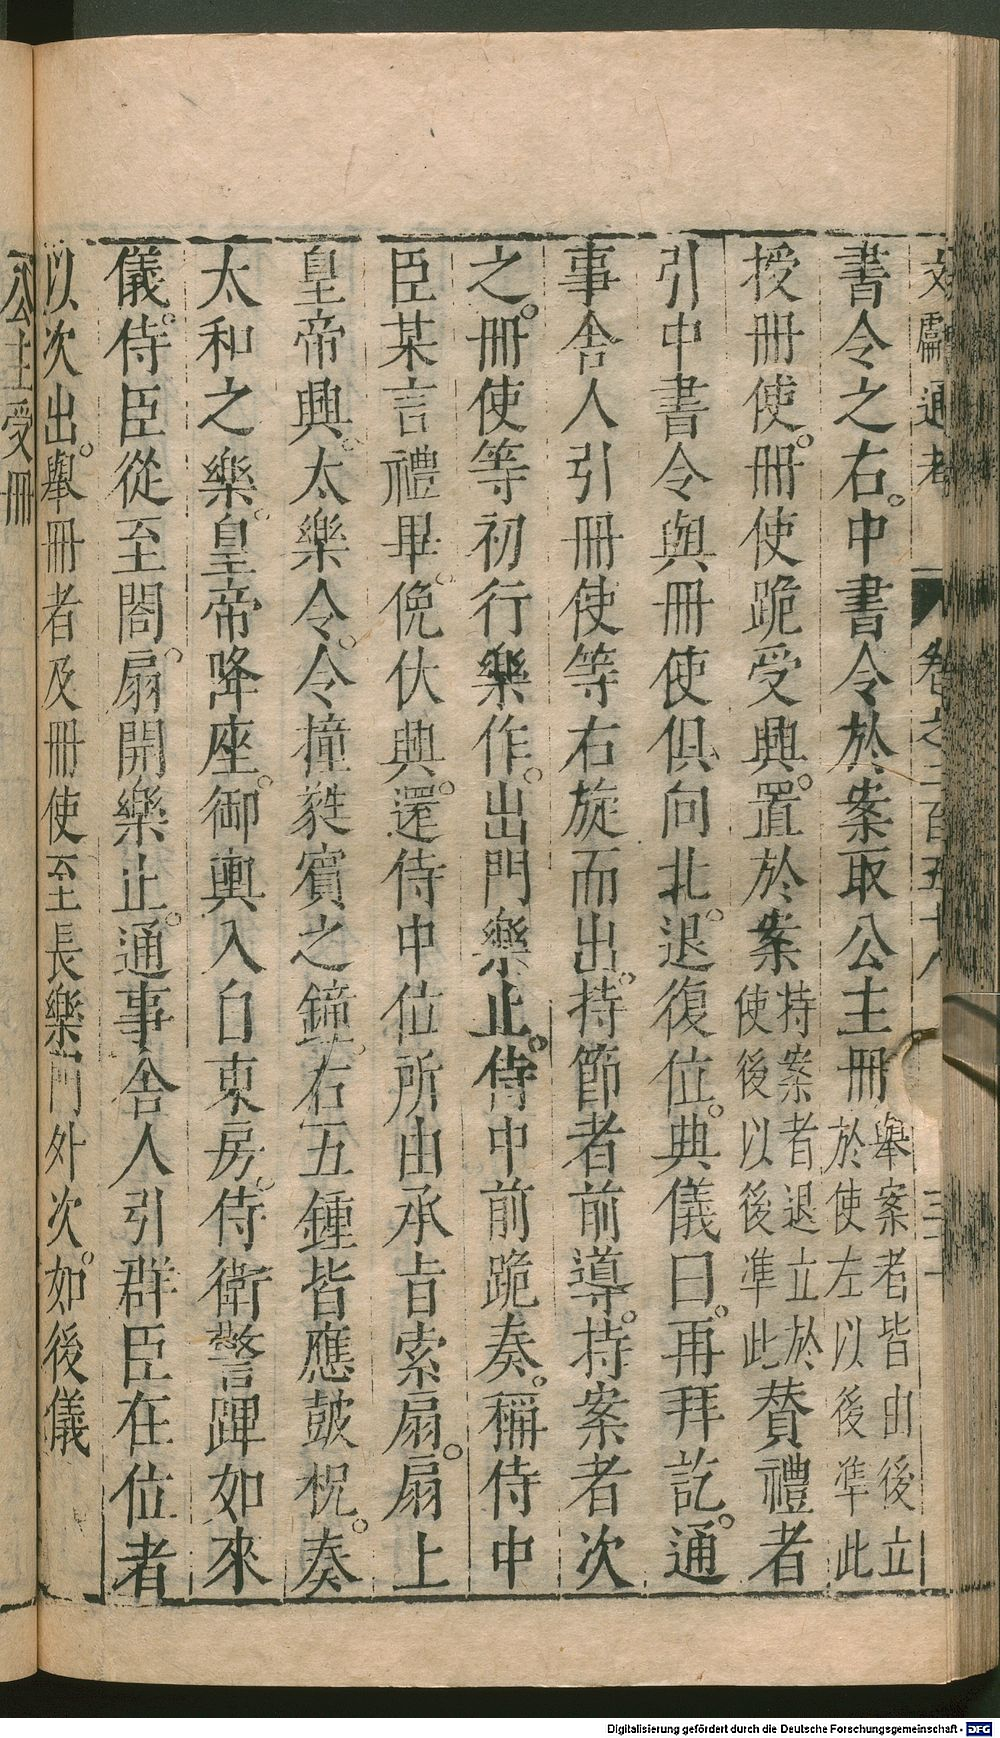 文獻通考 卷之二百五十八 三十一
書令之右。中書令於案取公主冊舉案者皆由後立於使左以後準此
授冊使。冊使跪受興。置於案持案者退立於使後以後準此賛禮者
引中書令與冊使俱向北。退復位。典儀曰。再拜訖。通
事舍人引冊使等右旋而出。持節者前導。持案者次
之。冊使等初行樂作。出門樂止。侍中前跪奏。稱侍中
臣某言禮畢。俛伏興。還侍中位所由承旨索扇。扇上
皇帝興。太樂令。令撞蕤賓之鐘。右五鍾皆應鼓柷。奏
太和之樂。皇帝降座。御輿入自東房。侍衛警蹕如來
儀。侍臣從至閤。扇開樂止。通事舍人引群臣在位者
以次出。舉冊者及冊使至長樂門外次。如後儀
公主受冊
Digitalisierung gefördert durch die Deutsche Forschungsgemeinschaft - DFG